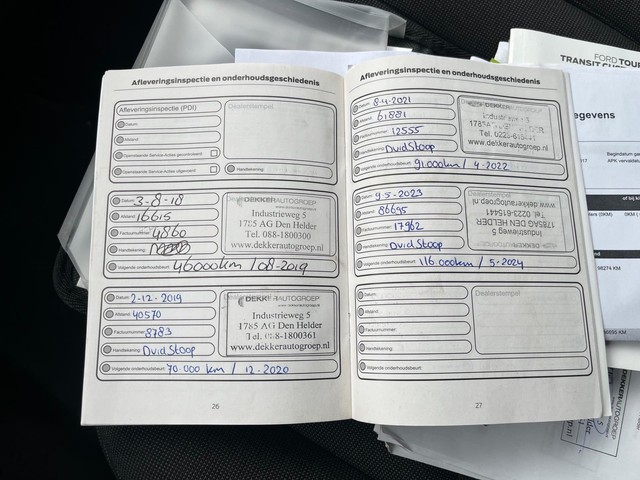 Afleveringsinspectie en onderhoudsgeschiedenis
Afleveringsinspectie (PDI)
Dealerstempel
Datum:
Afstand:
Openstaande Service-Acties gecontroleerd:
Openstaande Service-Acties uitgevoerd:
Handtekening:
Datum: 3-8-18
Afstand: 16615
Factuurnummer: 4860
Handtekening:
Volgende onderhoudsbeurt: 46000km / 08-2019
DEKKERAUTOGROEP
Industrieweg 5
1785 AG Den Helder
Tel. 088-1800300
www.dekkerautogroep.nl
Datum: 2-12-2019
Afstand: 40570
Factuurnummer: 8783
Handtekening: Dvid Stoop
Volgende onderhoudsbeurt: 70.000 km / 12-2020
DEKKERAUTOGROEP
Industrieweg 5
1785 AG Den Helder
Tel. 088-1800361
www.dekkerautogroep.nl
26
Afleveringsinspectie en onderhoudsgeschiedenis
Datum: 8-4-2021
Afstand: 61881
Factuurnummer: 12555
Handtekening: Dvid Stoop
Volgende onderhoudsbeurt: 91.000km / 4-2022
DEKKERAUTOGROEP
Industrieweg 5
www.dekkerautogroep.nl
Datum: 9-5-2023
Afstand: 86695
Factuurnummer: 17962
Handtekening: Dvid Stoop
Volgende onderhoudsbeurt: 116.000km / 5-2024
Dealerstempel
DEKKERAUTOGROEP
Industrieweg 5
1785AG DEN HELDER
Tel. 0223-615441
www.dekkerautogroep.nl
Datum:
Afstand:
Factuurnummer:
Handtekening:
Volgende onderhoudsbeurt:
Dealerstempel
27
FORD TOUR
TRANSIT CU
egevens